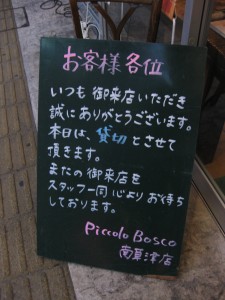 お客様各位
いつも御来店いただき
誠にありがとうございます。
本日は、貸切とさせて
頂きます。
またの御来店を
スタッフ一同心よりお待ち
しております。
Piccolo Bosco
南草津店